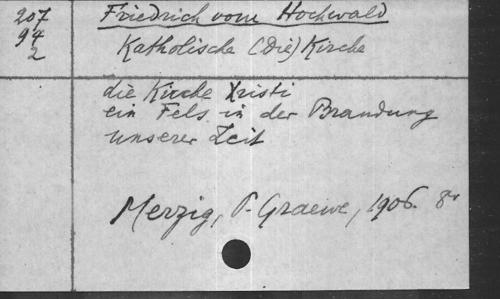 207
94
2
Friedrich vom Hochwald
Katholische (Die) Kirche
die Kirche Xristi
ein Fels in der Brandung
unserer Zeit
Merzig, P. Graewe, 1906. 8°